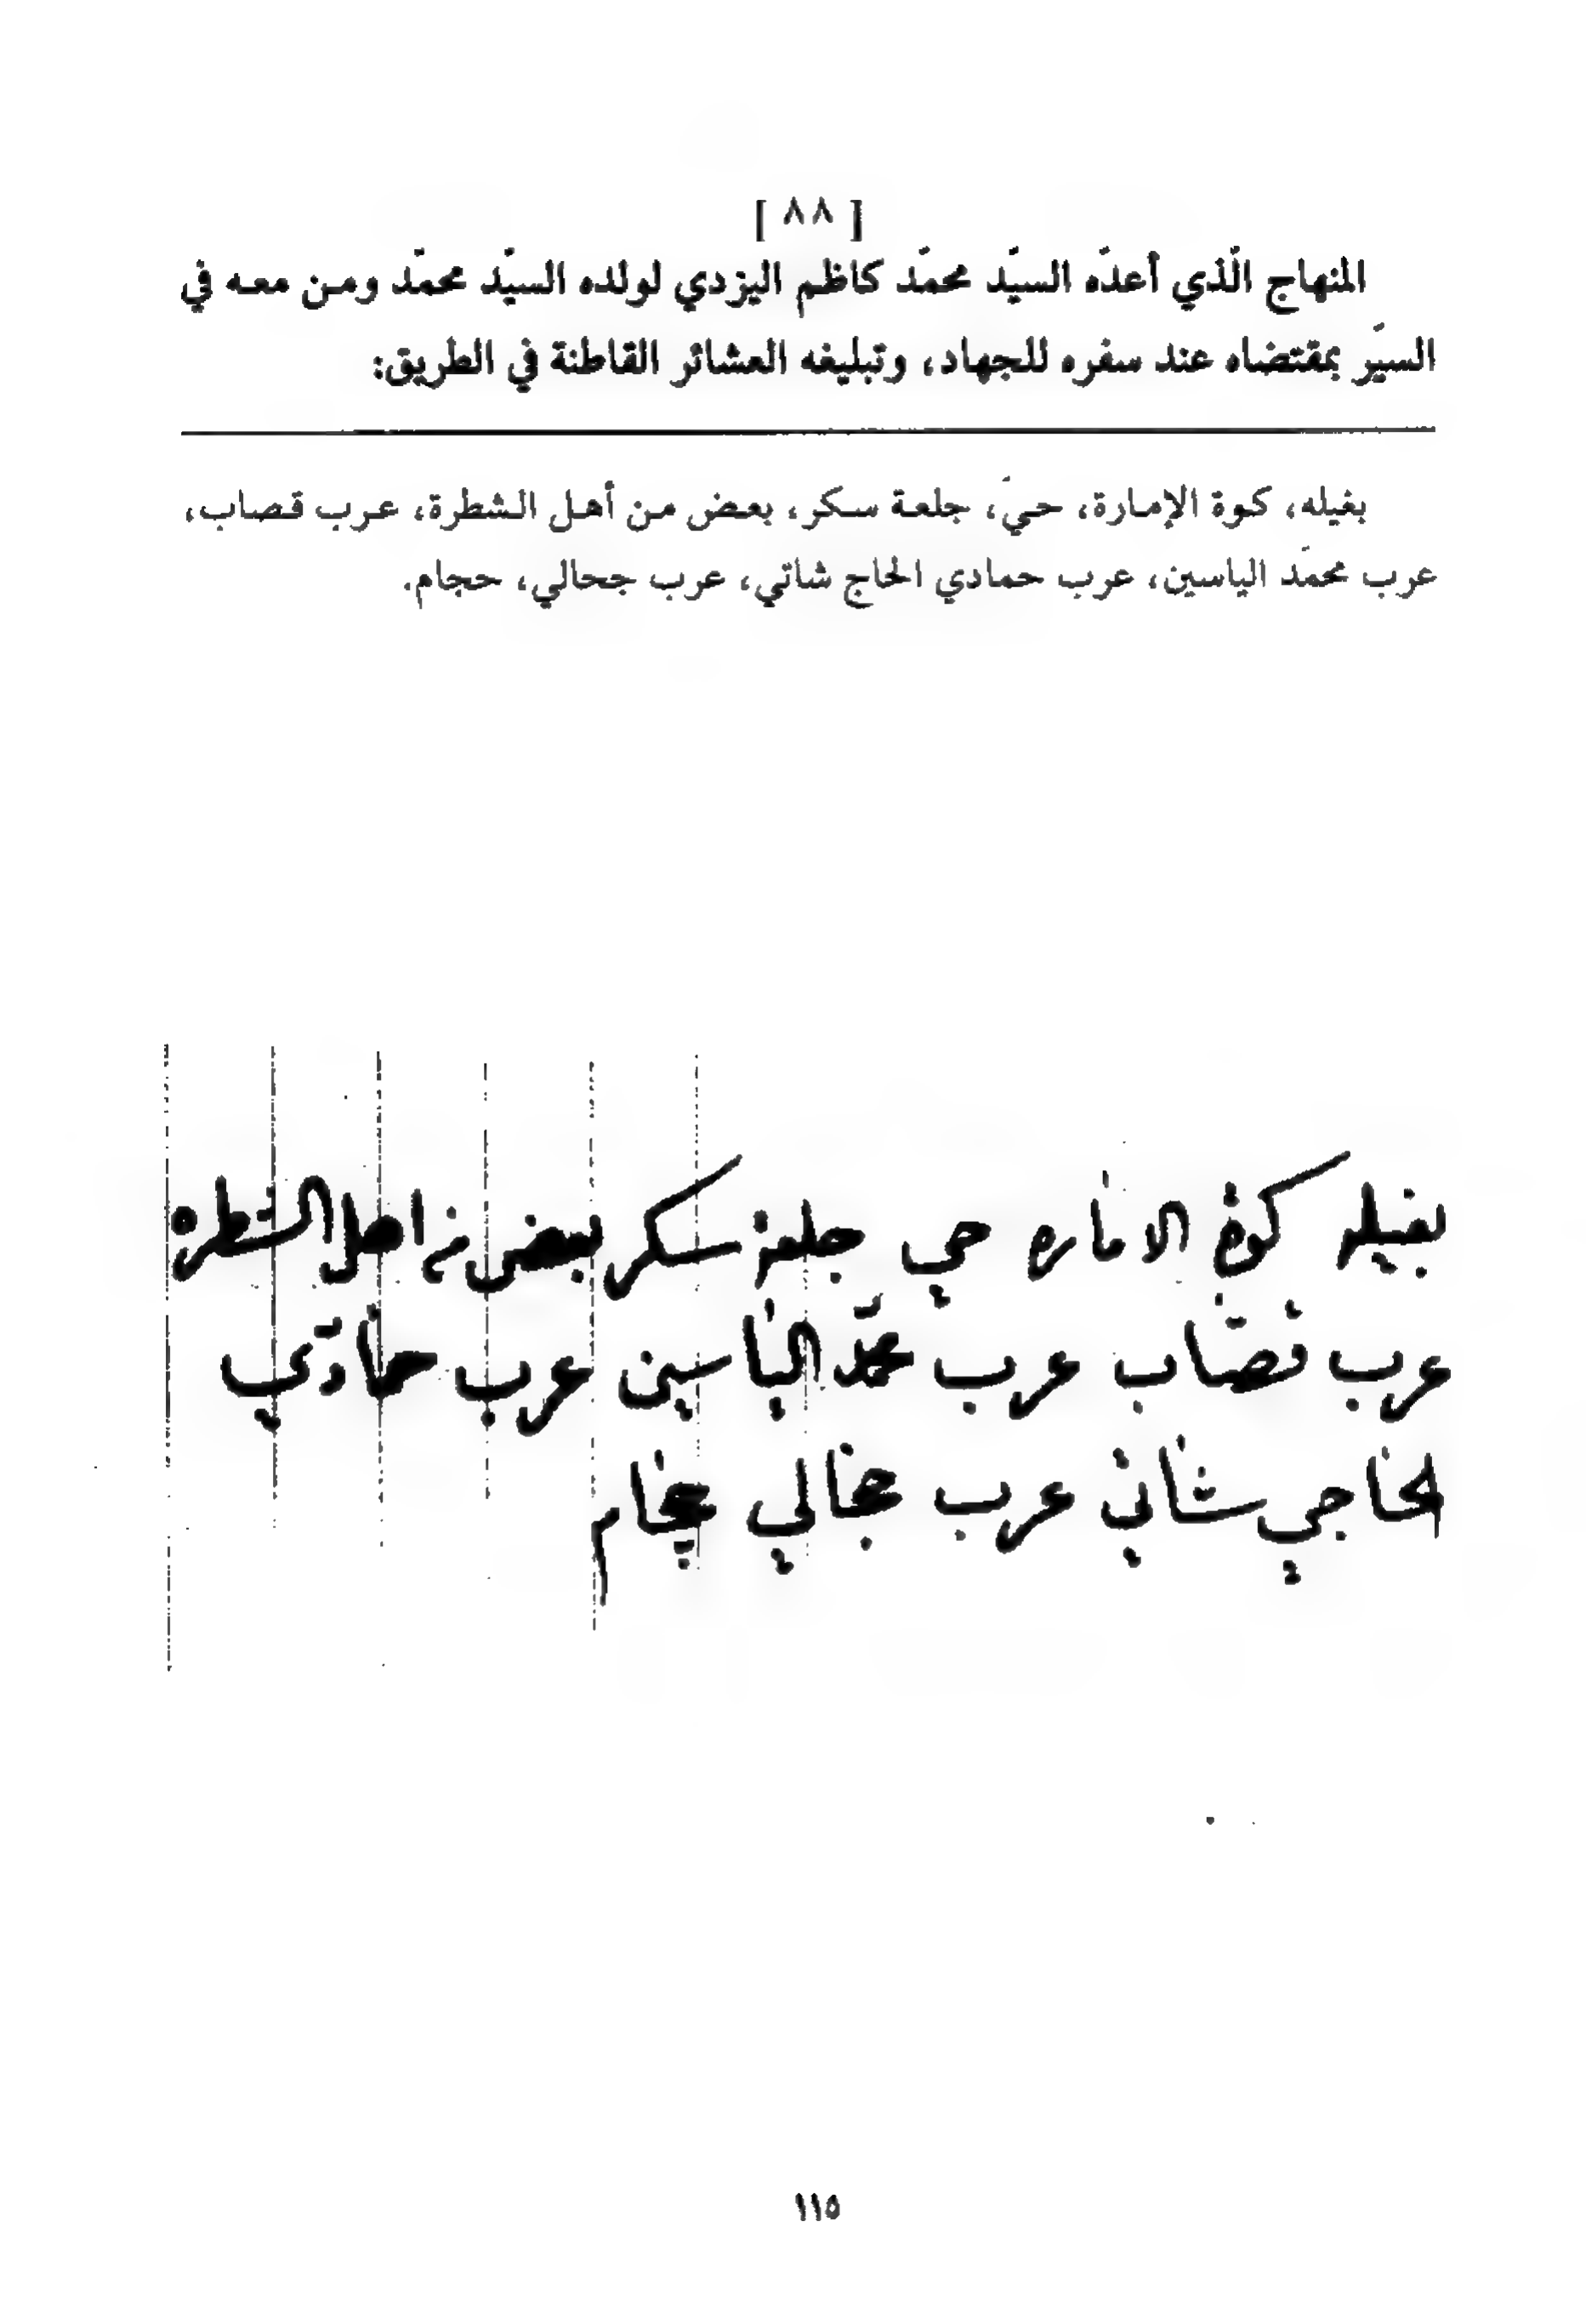 [ ٨٨ ]
المنهاج الّذي أعدّه السيّد محمّد كاظم اليزدي لولده السيّد محمّد ومن معه في
السيّر بمقتضاه عند سفره للجهاد، وتبليغه العشائر القاطنة في الطريق:
بغيله، كوة الإمارة، حيّ، جلعة سكر، بعض من أهل الشطرة، عرب قصاب،
عرب محمّد الياسين، عرب حمادي الحاج شاتي، عرب جحالي، حجام.
بغيله كوة الاماره حي جلعة سكر بعض من اهل الشطره
عرب قصّاب عرب محمّد الياسين عرب حمادي
الحاجي شاتي عرب جحالي حجام
١١٥